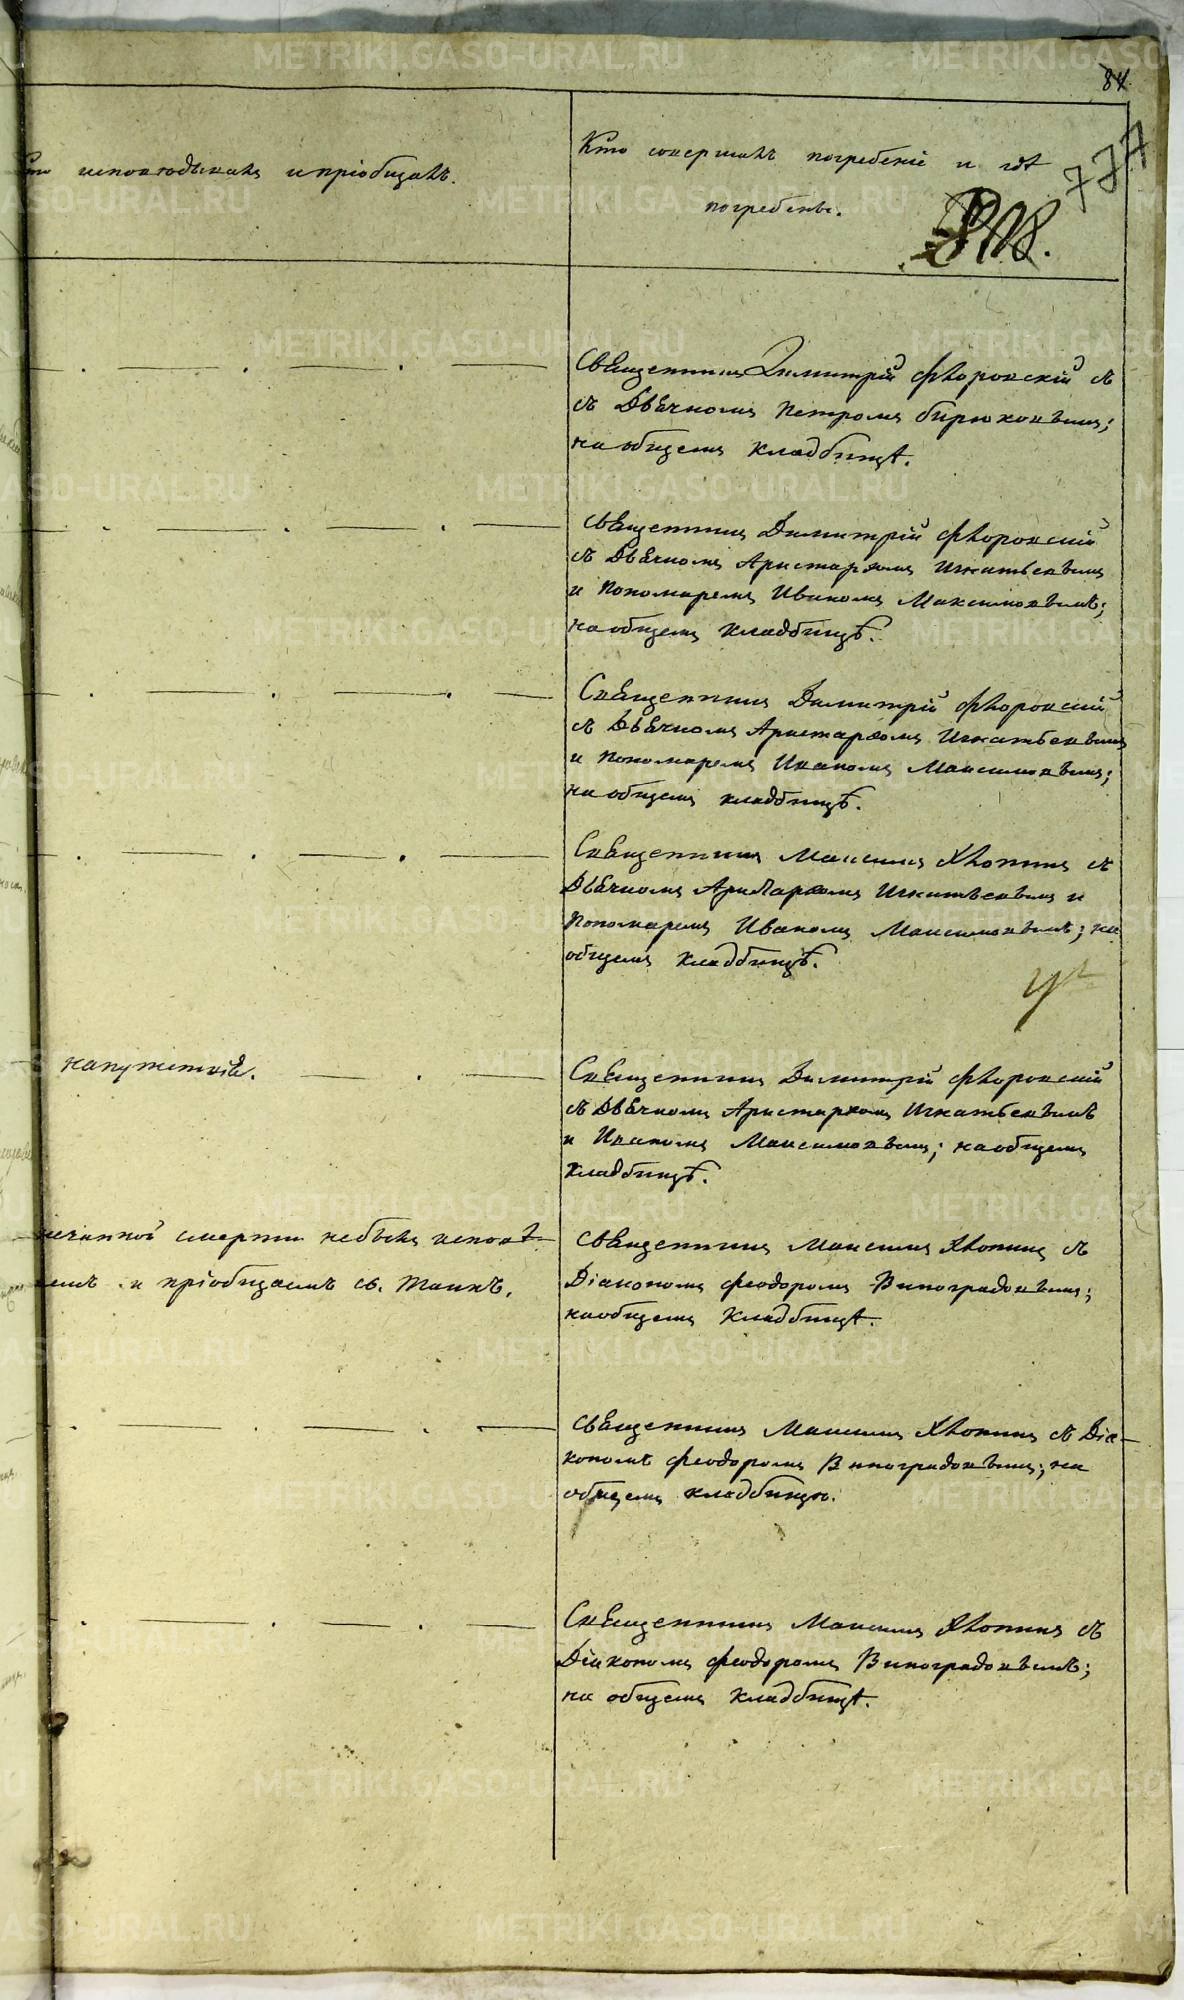 84
777
Кто исповѣдывалъ и пріобщалъ.
Кто совершалъ погребеніе и гдѣ
погребены.
Священникъ Димитрій Флоровскій съ
съ Дьячкомъ Петромъ Бирюковымъ;
на общемъ кладбищѣ.
Священникъ Димитрій Флоровскій
съ Дьячкомъ Аристархомъ Игнатьевымъ
и Пономаремъ Иваномъ Максимовымъ;
на общемъ кладбищѣ.
Священникъ Димитрій Флоровскій
съ Дьячкомъ Аристархомъ Игнатьевымъ
и Пономаремъ Иваномъ Максимовымъ;
на общемъ кладбищѣ.
Священникъ Максимъ Хлопинъ съ
Дьячкомъ Аристархомъ Игнатьевымъ и
Пономаремъ Иваномъ Максимовымъ; на
общемъ кладбищѣ.
Священникъ Димитрій Флоровскій
съ Дьячкомъ Аристархомъ Игнатьевымъ
и Иваномъ Максимовымъ; на общемъ
кладбищѣ.
смерти не былъ исповѣ-
и пріобщаемъ св. Таинъ.
Священникъ Максимъ Хлопинъ съ
Діакономъ Феодоромъ Виноградовымъ;
на общемъ кладбищѣ.
Священникъ Максимъ Хлопинъ съ Діа-
кономъ Феодоромъ Виноградовымъ; на
общемъ кладбищѣ.
Священникъ Максимъ Хлопинъ съ
Діакономъ Феодоромъ Виноградовымъ;
на общемъ кладбищѣ.
METRIKI.GASO-URAL.RU